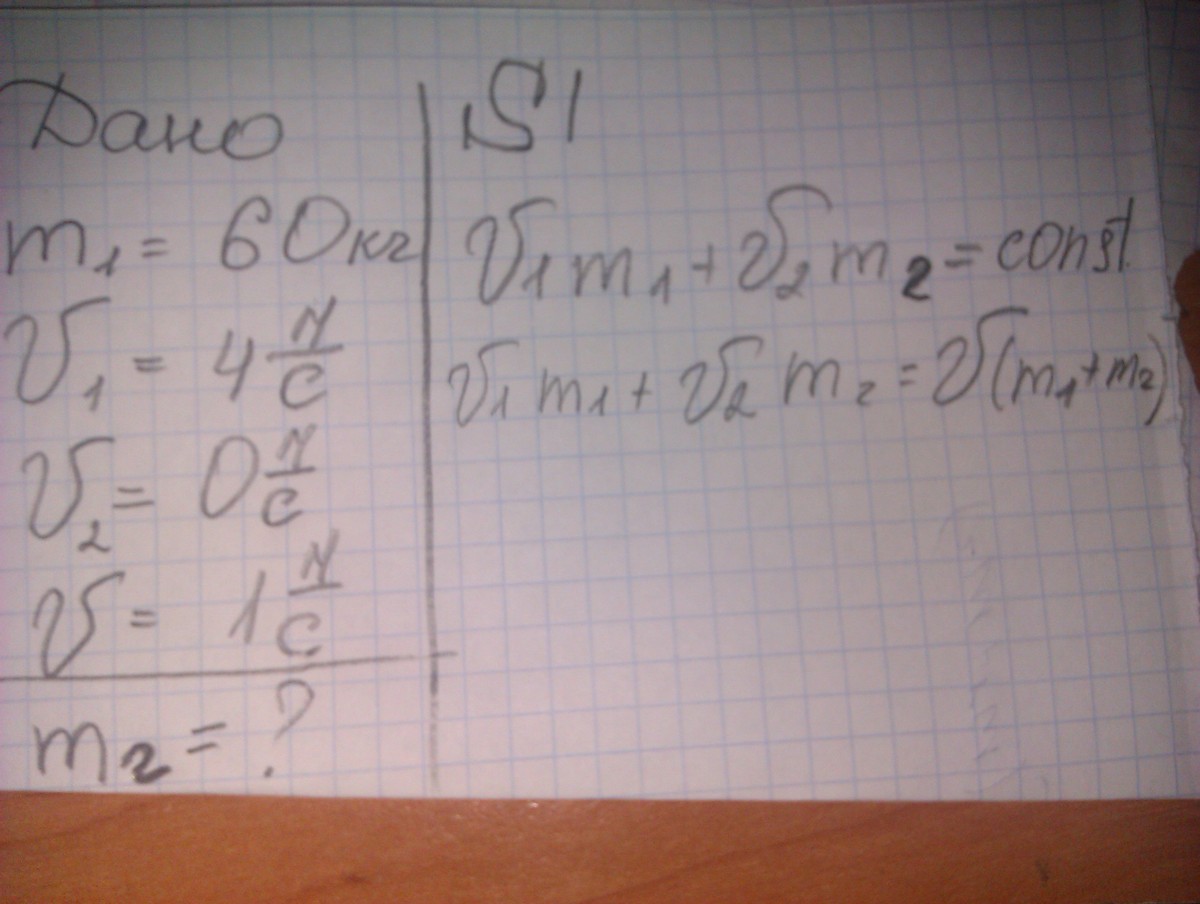 Дано
m₁ = 60кг
V₁ = 4 м/с
V₂ = 0 м/с
V = 1 м/с
m₂ = ?
SI
V₁m₁ + V₂m₂ = const
V₁m₁ + V₂m₂ = V(m₁+m₂)